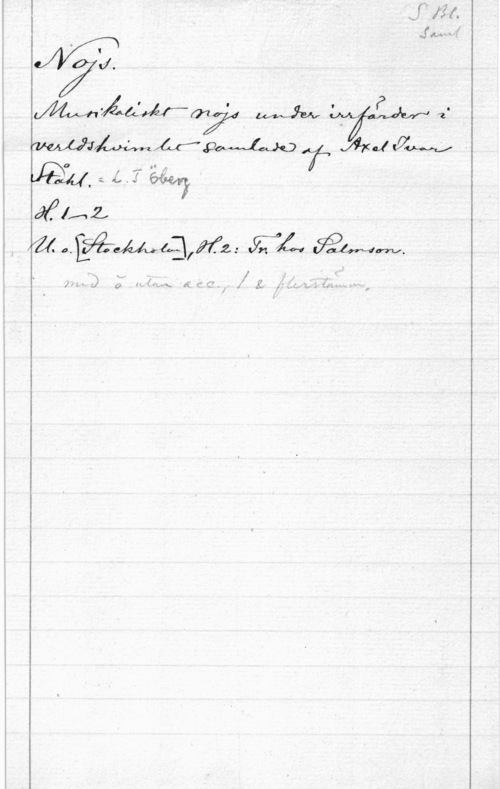 S Bl.
Saml
Nojs.
Musikaliskt nojs under irrfärder i
verldshvimlet samlade af Axel Ivar
Ståhl. = L. T Öberg
H. 1–2
U. o. [Stockholm], H. 2: Tr. hos Salmson.
med o utan acc., 1 & flerstämm.